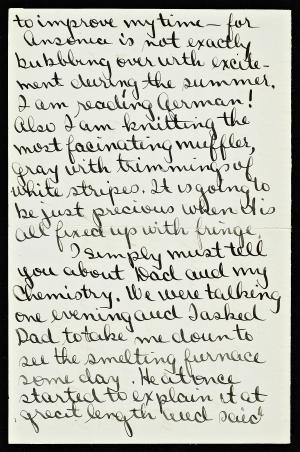 to improve my time – for
Ansonia is not exactly
bubbling over with excite-
ment during the summer.
I am reading German!
Also I am knitting the
most facinating muffler,
gray with trimmings of
white stripes. It is going to
be just precious when it is
all fixed up with fringe.
I simply must tell
you about Dad and my
Chemistry. We were talking
one evening and I asked
Dad to take me down to
see the smelting furnace
some day. He at once
started to explain it at
great length and said